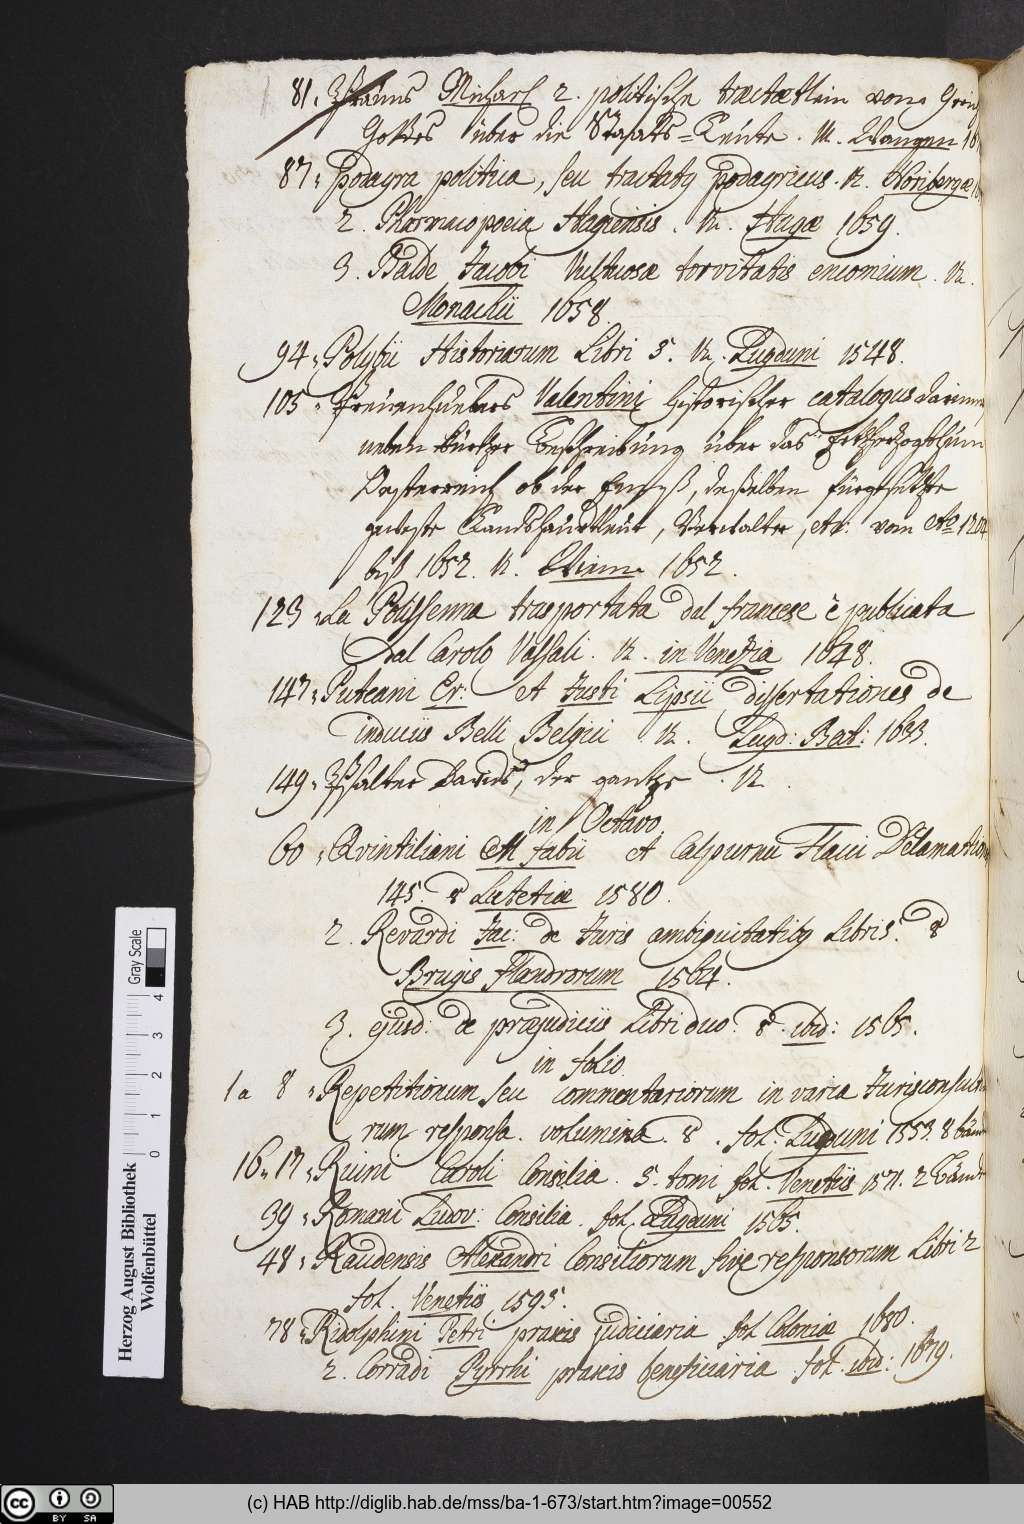 81. Michael 2. politische tractætlein vom
Gottes über die Staats=Leüte.
87. Podagra politica, seu tractatus podagricus. Noribergæ
2. Pharmacopoeia Hagiensis. Hagæ 1659.
3. Balde Jacobi Vultuosæ torvitatis encomium.
Monachii 1658
94. Polybii Historiarum Libri 5. Lugduni 1548.
105. Preuenhuebers Valentini historischer catalogus darinnen
neben kurtzer Beschreibung über das Ertzherzogthum
Oesterreich ob der Ennß, desselben fürgesetzte
Landshaubtleut, Verwalter, etc: vom Aº
biß 1652. Wienn 1652.
123. La Polissenna trasportata dal francese è publicata
dal Carolo Vassali. in Venezia 1648.
147. Puteani Er: et Justi Lipsii dissertationes de
induciis Belli Belgici Lugd: Bat: 1633.
149. Psalter Davids, der gantze.
in Octavo
60. Qvintiliani M fabii et Calpurnii Flacci Declamation
145. 8 Lutetiæ 1580.
2. Revardi Jac: de Juris ambiguitatibus Libri 5. 8
Brugis Flandrorum 1564.
3. ejusd: de præjudiciis Libri duo. 8 ibid: 1565.
in folio
1 a 8. Repetitionum seu commentariorum in varia Jurisconsulto
rum responsa. volumina. 8. fol. Lugduni 1553. 8 bände
16. 17. Ruini Caroli Consilia. 5. tomi fol. Venetiis 1571. 2 Bände
39. Romani Ludov: Consilia. fol. Lugduni 1565.
48. Raudensis Alexandri Consiliorum sive responsorum Libri 2
fol. Venetiis 1595.
78. Ridolphini Petri praxis judiciaria fol Coloniæ 1680.
2. Corradi Pyrrhi praxis beneficiaria. fol. ibid: 1679.
Herzog August Bibliothek
Wolfenbüttel
0 1 2 3 4 Gray Scale
cc BY SA
(c) HAB http://diglib.hab.de/mss/ba-1-673/start.htm?image=00552